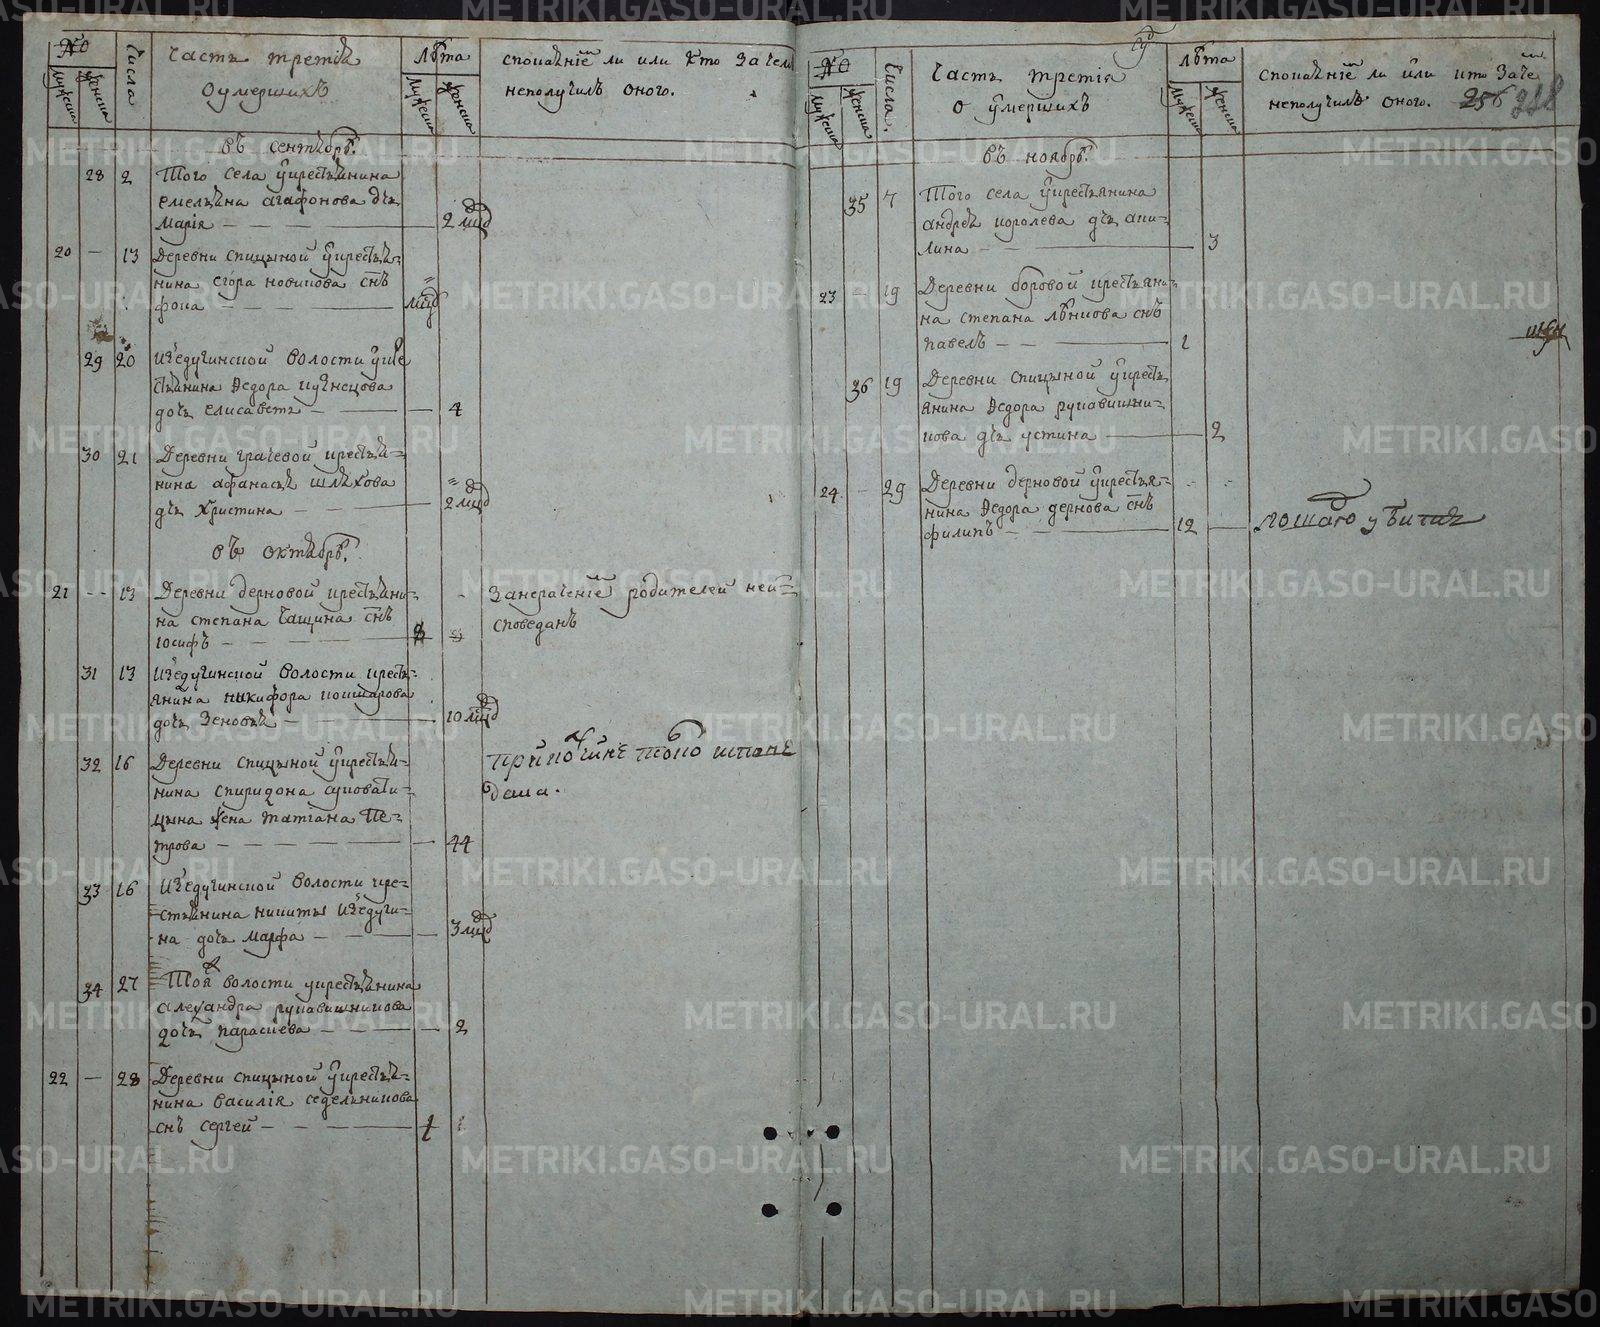 №
мужеска
женска
числа
Часть третія
о умершихъ
лѣта
мужеска
женска
споканіем ли или кто зачем
неполучилъ оного.
въ сентябрѣ.
28 2 Того села крестьянина
емельяна агафонова дчь
Марія — — — — 2 мцд
20 — 13 Деревни спицыной крестья=
нина егора новикова снъ
фока — — — — мцд
29 20 волости кре
стьянина Ѳедора кузнецова
дочь елисаветъ — — — 4
30 21 Деревни грачевой крестья=
нина афанасья шляхова
дчь Христина — — — — 2 мцд
въ октябрѣ.
21 -- 13 Деревни дерновой крестьяни=
на степана чащина снъ
іосифъ — — — — 8
Занерачениемъ родителей неи=
споведанъ
31 13 волости кресть=
янина никифора кошкарова
дочь Зеновья — — — 10 мцд
32 16 Деревни спицыной крестья=
нина спиридона суковати=
цына жена татіана Пе=
трова — — — — — 44
33 16 волости кре=
стьянина никиты
на дочь марфа — — — 3 мцд
34 27 Той волости крестьянина
александра рукавишникова
дочь параскева — — — — 2
22 — 28 Деревни спицыной крестья=
нина василія седельникова
снъ сергей — — — 1
№
мужеска
женска
числа.
Часть третія
о умершихъ
лѣта
мужеска
женска
споканіем ли или кто заче
неполучилъ оного.
256
въ ноябрѣ.
35 7 Того села крестьянина
андрея королева дчь аки=
лина — — 3
23 — 19 Деревни боровой крестьяни=
на степана снъ
павелъ — — 1
36 19 Деревни спицыной кресть
янина Ѳедора рукавишни=
кова дчь устина — 2
24 — 29 Деревни дерновой крестья=
нина Ѳедора дернова снъ
филипъ — — 12 — лошадю убитъ